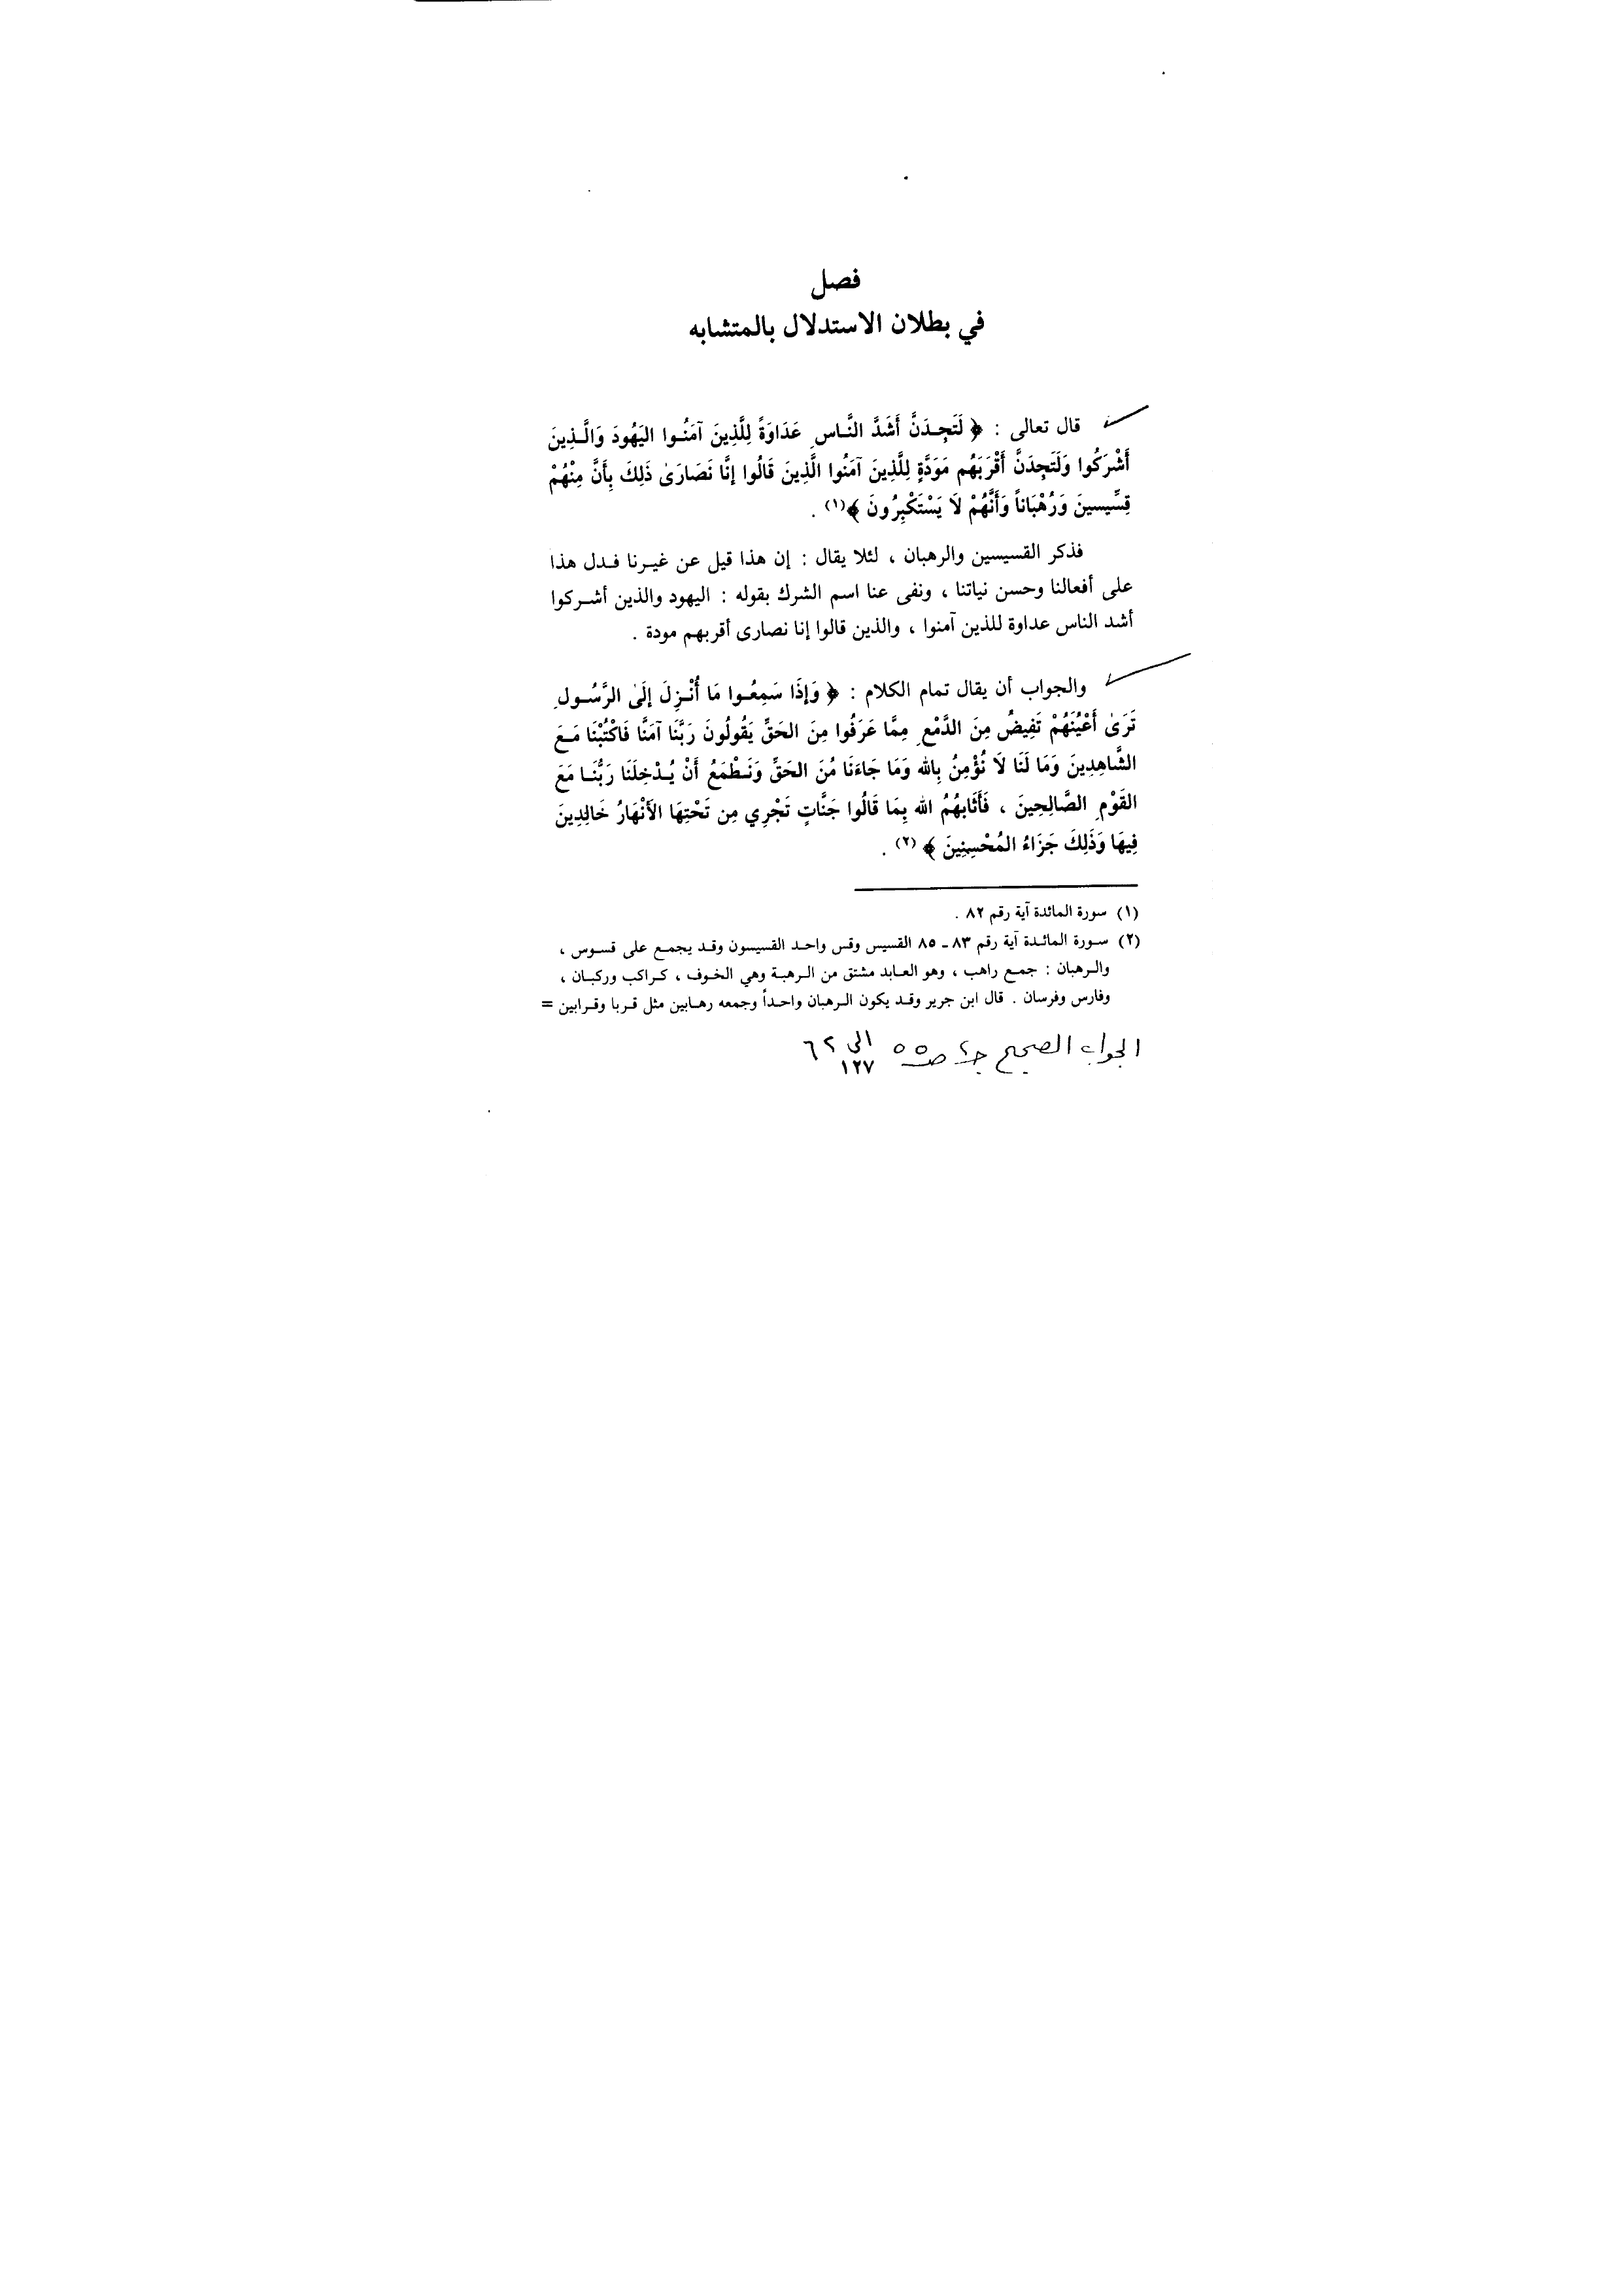 فصل
في بطلان الاستدلال بالمتشابه
قال تعالى : ﴿ لَتَجِدَنَّ أَشَدَّ النَّاسِ عَدَاوَةً لِلَّذِينَ آمَنُوا اليَهُودَ وَالَّذِينَ
أَشْرَكُوا وَلَتَجِدَنَّ أَقْرَبَهُم مَوَدَّةٍ لِلَّذِينَ آمَنُوا الَّذِينَ قَالُوا إِنَّا نَصَارَىٰ ذَلِكَ بِأَنَّ مِنْهُمْ
قِسِّيسينَ وَرُهْبَاناً وَأَنَّهُمْ لاَ يَسْتَكْبِرُونَ ﴾(١) .
فذكر القسيسين والرهبان ، لئلا يقال : إن هذا قيل عن غيرنا فدل هذا
على أفعالنا وحسن نياتنا ، ونفى عنا اسم الشرك بقوله : اليهود والذين أشركوا
أشد الناس عداوة للذين آمنوا ، والذين قالوا إنا نصارى أقربهم مودة .
والجواب أن يقال تمام الكلام : ﴿ وَإِذَا سَمِعُوا مَا أُنْزِلَ إِلَىٰ الرَّسُولِ
تَرَىٰ أَعْيُنَهُمْ تَفِيضُ مِنَ الدَّمْعِ مِمَّا عَرَفُوا مِنَ الحَقِّ يَقُولُونَ رَبَّنَا آمَنَّا فَاكْتُبْنَا مَعَ
الشَّاهِدِينَ وَمَا لَنَا لَا نُؤْمِنُ بِالله وَمَا جَاءَنَا مُنَ الحَقِّ وَنَطْمَعُ أَنْ يُدْخِلَنَا رَبُّنَا مَعَ
القَوْمِ الصَّالِحِينَ ، فَأَثَابهُمُ الله بِمَا قَالُوا جَنَّاتٍ تَجْرِي مِن تَحْتِهَا الأَنْهَارُ خَالِدِينَ
فِيهَا وَذَلِكَ جَزَاءُ المُحْسِنِينَ ﴾ (٢) .
(١) سورة المائدة آية رقم ٨٢ .
(٢) سورة المائدة آية رقم ٨٣ - ٨٥ القسيس وقس واحد القسيسون وقد يجمع على قسوس ،
والرهبان : جمع راهب ، وهو العابد مشتق من الرهبة وهي الخوف ، كراكب وركبان ،
وفارس وفرسان . قال ابن جرير وقد يكون الرهبان واحداً وجمعه رهابين مثل قربا وقرابين =
الجواب الصحيح ج٢ ص ٥٥ الى ٦٢
١٢٧